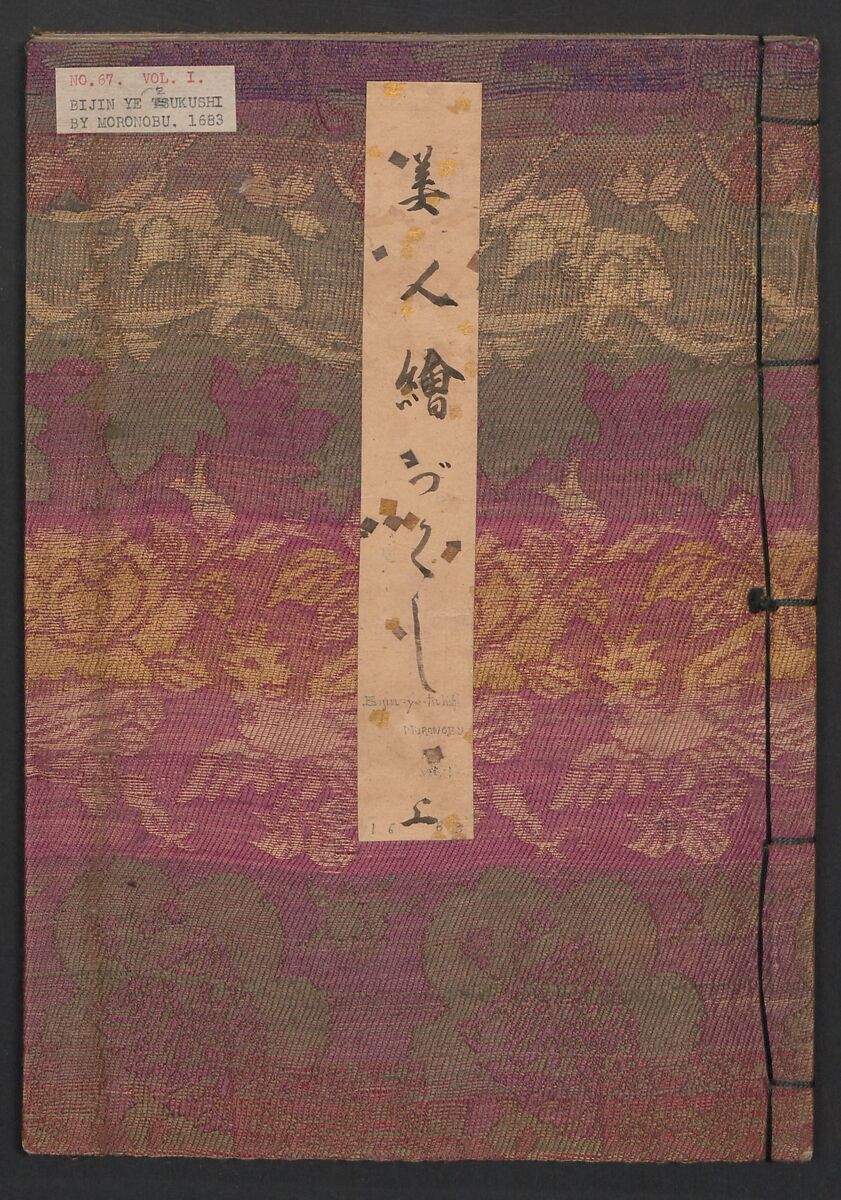 NO.67. VOL. I.
BIJIN YE TSUKUSHI
BY MORONOBU. 1683
美人繪づくし
上
Bijin-ye-
MORONOBU
Vol. 1
1683